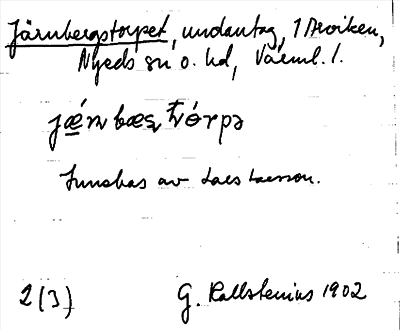 Järnbergstorpet, undantag, 1 Arviken,
Nyeds sn o. hd, Värml. l.
jǽn bæs tórpə
av Lars Larsson.
2(3) G. Kallstenius 1902